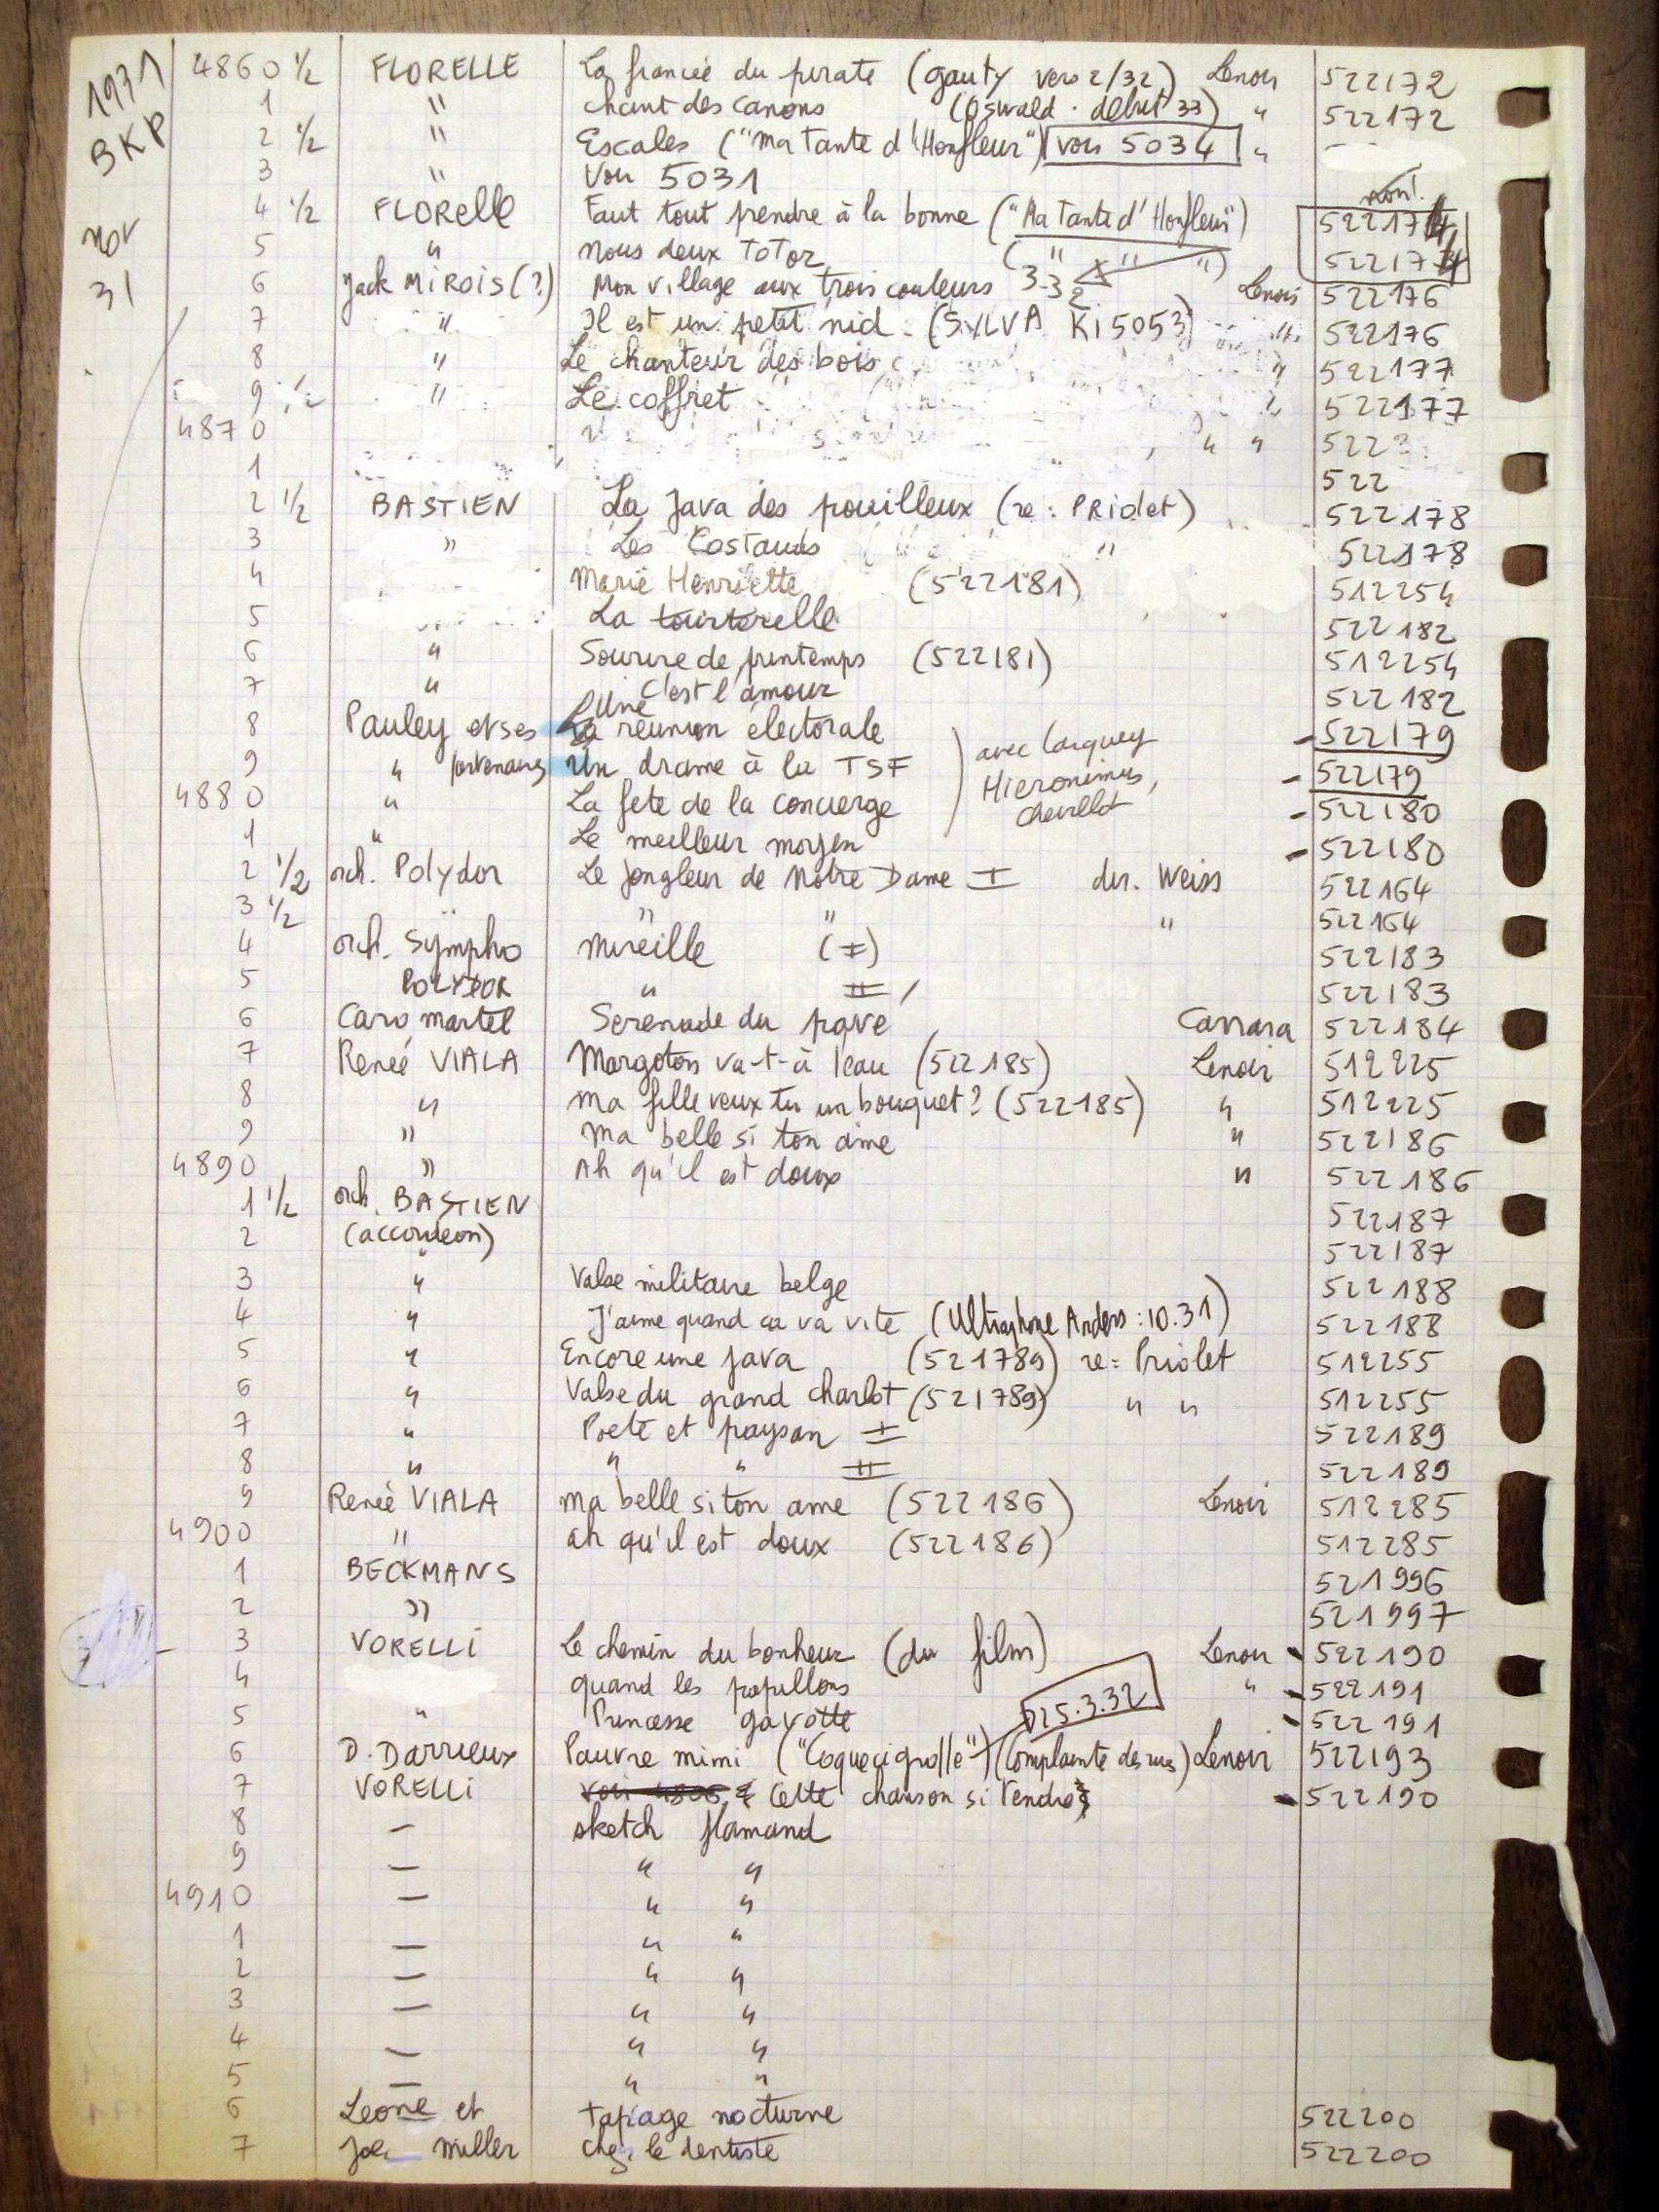 1931
BKP
nov
31
4860 ½ FLORELLE La fiancée du pirate (Gauty vers 2/32) Lenoir 522172
1 " chant des canons (Oswald . debut 33) " 522172
2 ½ " Escales ("Ma Tante d'Honfleur") voir 5034 "
3 " Voir 5031
non!
4 ½ FLORELLE Faut tout prendre à la bonne ("Ma Tante d'Honfleur") 522174
5 " nous deux Totor (" " ") 522174
6 Jack MIROIS (?) Mon village aux trois couleurs 3-32 Lenoir 522176
7 " Il est un petit nid (SYLVA Ki 5053) " 522176
8 " Le chanteur des bois " 522177
9 ½ " Le coffret " 522177
4870 " " 522
1 522
2 ½ BASTIEN La Java des pouilleux (re: PRiolet) 522178
3 " Les Costauds " 522178
4 Marie Henriette (522181) 512254
5 La tourterelle 522182
6 " Sourire de printemps (522181) 512254
7 " C'est l'amour 522182
8 Pauley et ses Une réunion électorale 522179
9 " partenaires Un drame à la TSF 522179
avec Larquey
Hieronimus,
Chevillot
4880 " La fete de la concierge 522180
1 " Le meilleur moyen 522180
2 ½ orch. Polydor Le Jongleur de Notre Dame I dir. Weiss 522164
3 ½ " " " " 522164
4 orch. Sympho Mireille (I) 522183
5 POLYDOR " II 522183
6 Caro martel Serenade du pave Carrara 522184
7 Renée VIALA Margoton va-t-à l'eau (522185) Lenoir 512225
8 " ma fille veux tu un bouquet? (522185) " 512225
9 " ma belle si ton ame " 522186
4890 " Ah qu'il est doux " 522186
1 ½ orch. BASTIEN 522187
2 (accordeon) 522187
3 " Valse militaire belge 522188
4 " J'aime quand ca va vite (Ultraphone Anders: 10.31) 522188
5 " Encore une java (521789) re: Priolet 512255
6 " Valse du grand charlot (521789) " " 512255
7 " Poete et paysan I 522189
8 " " " II 522189
9 Renée VIALA ma belle si ton ame (522186) Lenoir 512285
4900 " ah qu'il est doux (522186) 512285
1 BECKMANS 521996
2 " 521997
3 VORELLI Le chemin du bonheur (du film) Lenoir 522190
4 quand les papillons " 522191
5 " Princesse gavotte 522191
D25.3.32
6 D. Darrieux Pauvre mimi ("Coquecigrolle") (Complainte des rues) Lenoir 522193
7 VORELLI Cette chanson si tendre 522190
8 — sketch flamand
9 — " "
4910 — " "
1 — " "
2 — " "
3 — " "
4 — " "
5 — " "
6 Leone et Tapage nocturne 522200
7 Joe Miller chez le dentiste 522200